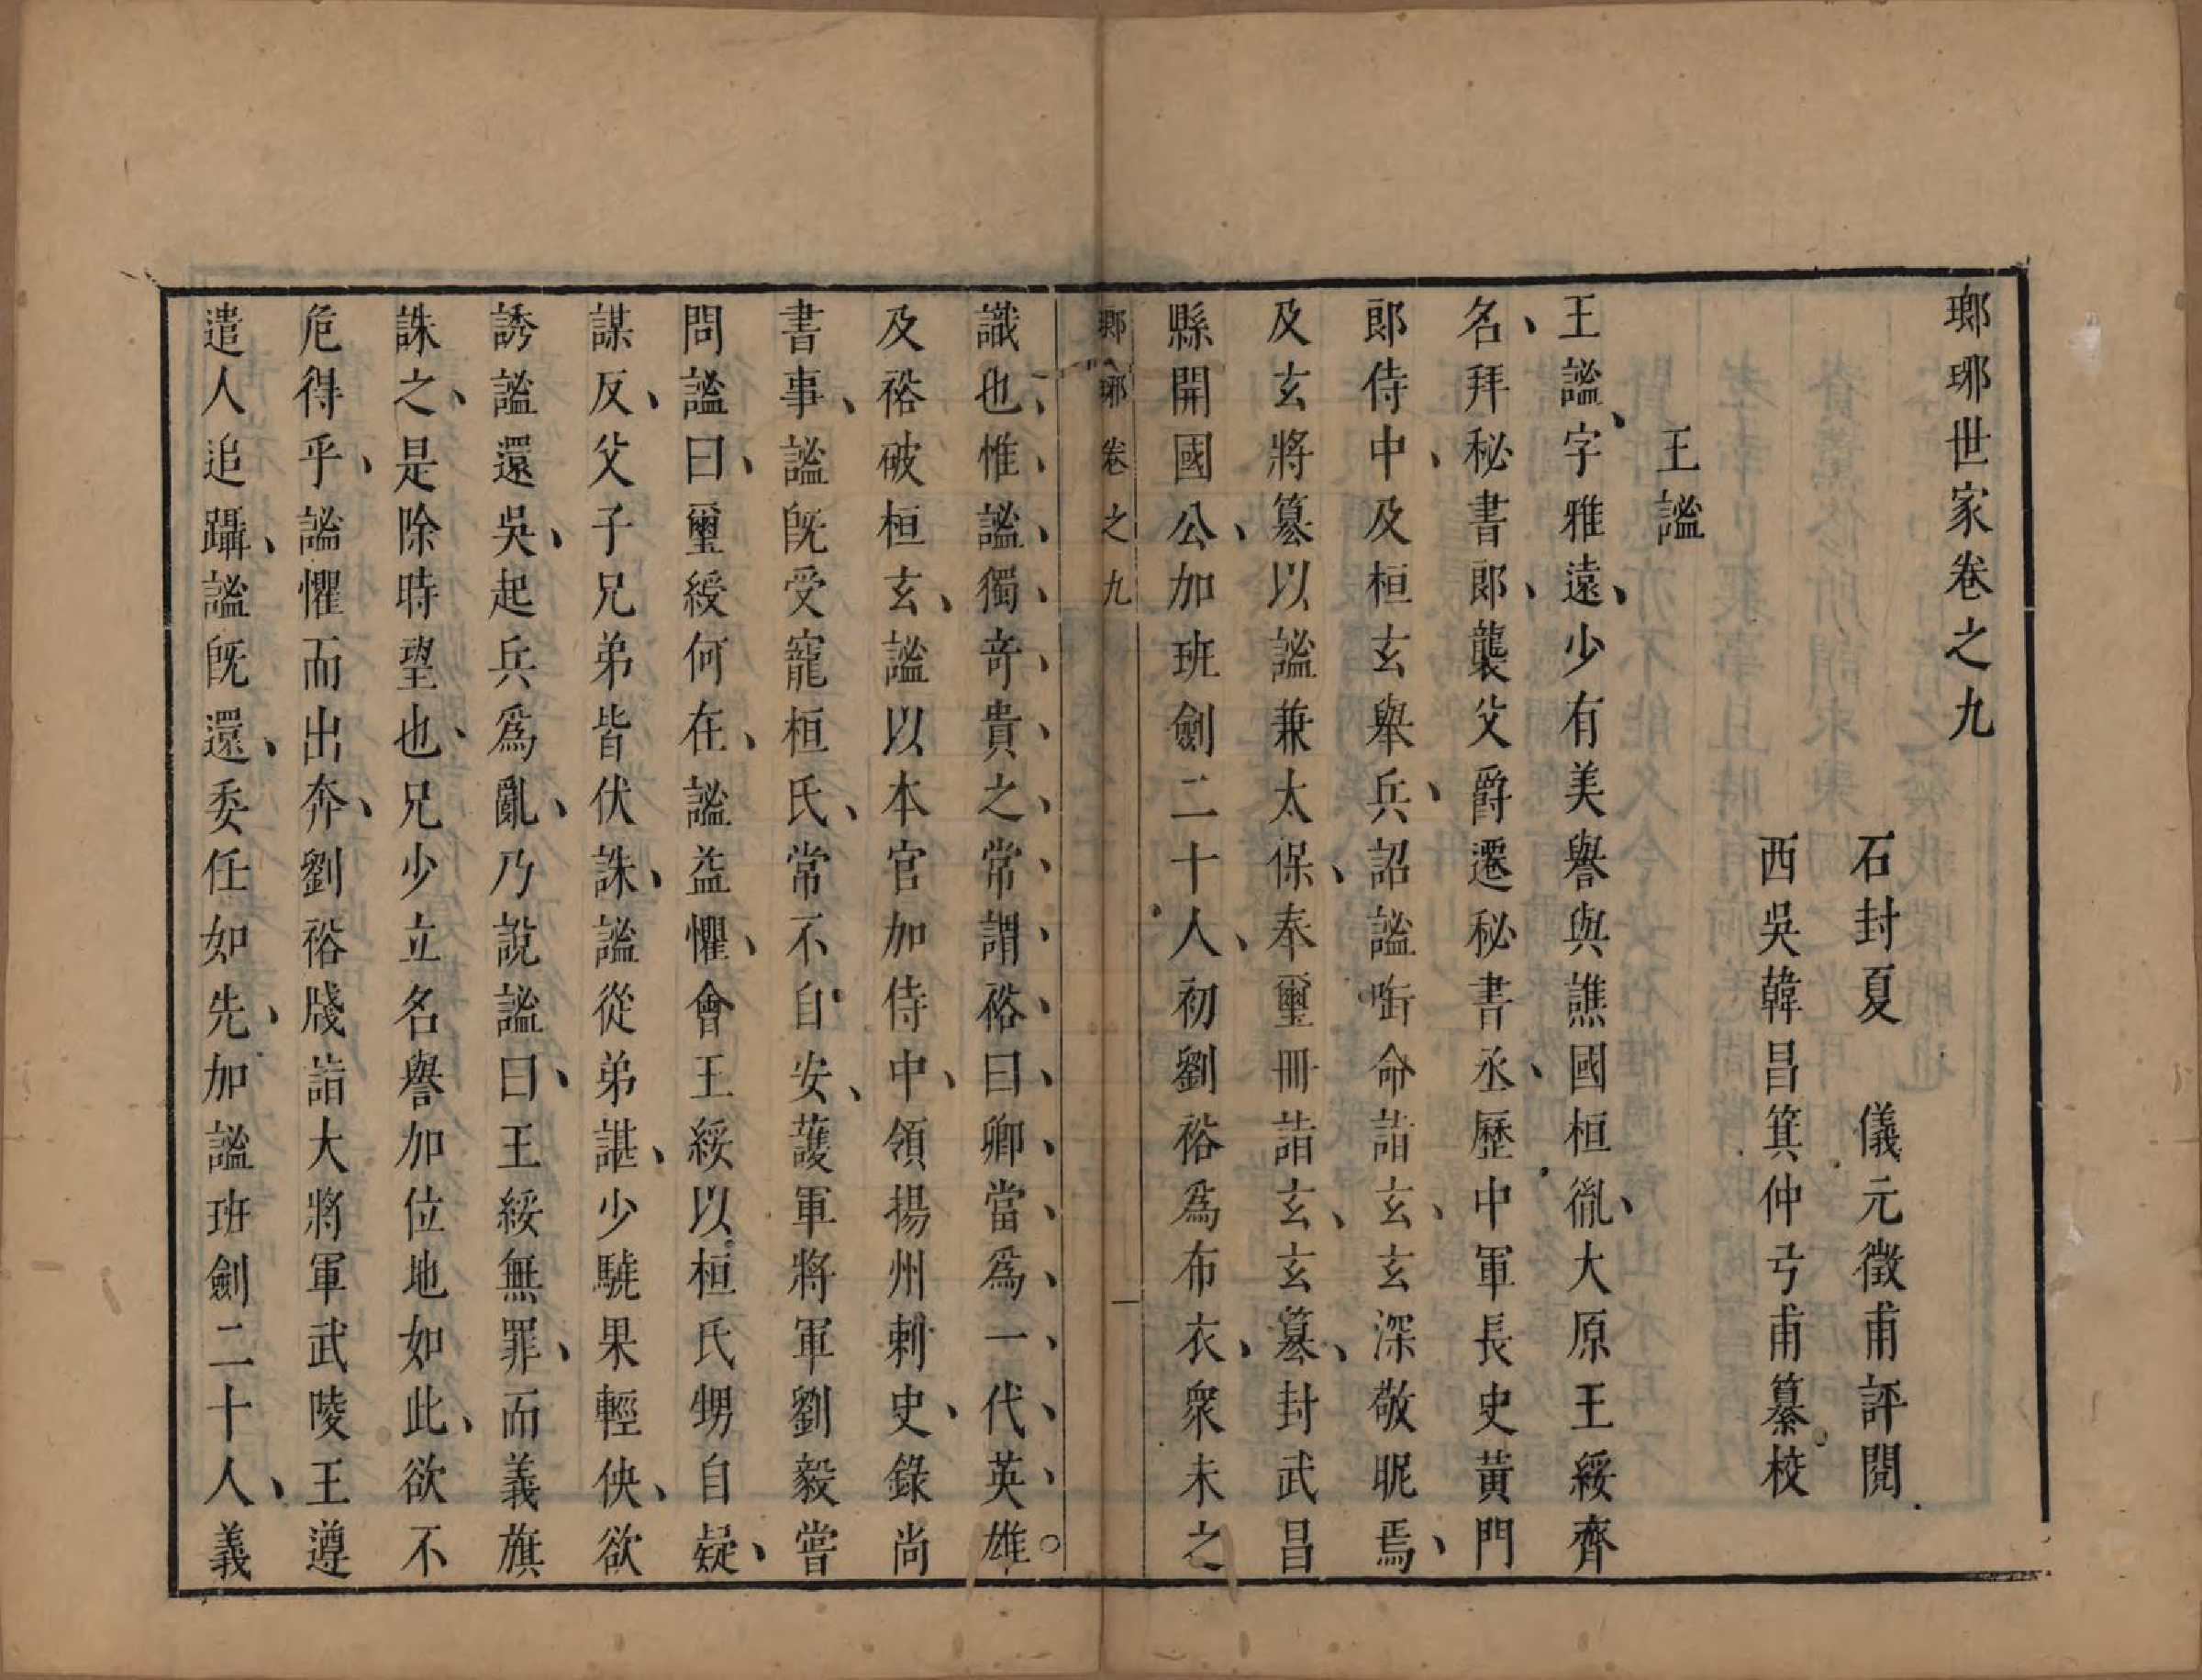 瑯琊世家卷之九
石封夏　儀元徵甫評閱
西吳韓昌箕仲弓甫纂校
王謐
王謐、字雅遠、少有美譽與譙國桓胤、大原王綏齊
名、拜秘書郎、襲父爵遷秘書丞、歷中軍長史黃門
郎侍中、及桓玄舉兵、詔謐銜命詣玄、玄深敬昵焉、
及玄將篡以謐兼太保、奉璽冊詣玄、玄篡、封武昌
縣開國公、加班劍二十人、初劉裕為布衣、衆未之
瑯琊　卷之九　一
識也、惟謐獨奇貴之常謂裕曰卿當為一代英雄。
及裕破桓玄、謐以本官加侍中、領揚州刺史、錄尚
書事、謐既受寵桓氏、常不自安、護軍將軍劉毅嘗
問謐曰、璽綬何在、謐益懼、會王綏以桓氏甥自疑、
謀反、父子兄弟皆伏誅、謐從弟諶、少驍果輕俠、欲
誘謐還吳、起兵為亂、乃說謐曰、王綏無罪、而義旗
誅之、是除時望也、兄少立名譽加位地如此、欲不
危得乎、謐懼而出奔、劉裕牋詣大將軍武陵王遵
遣人追躡、謐既還、委任如先、加謐班劍二十人、義